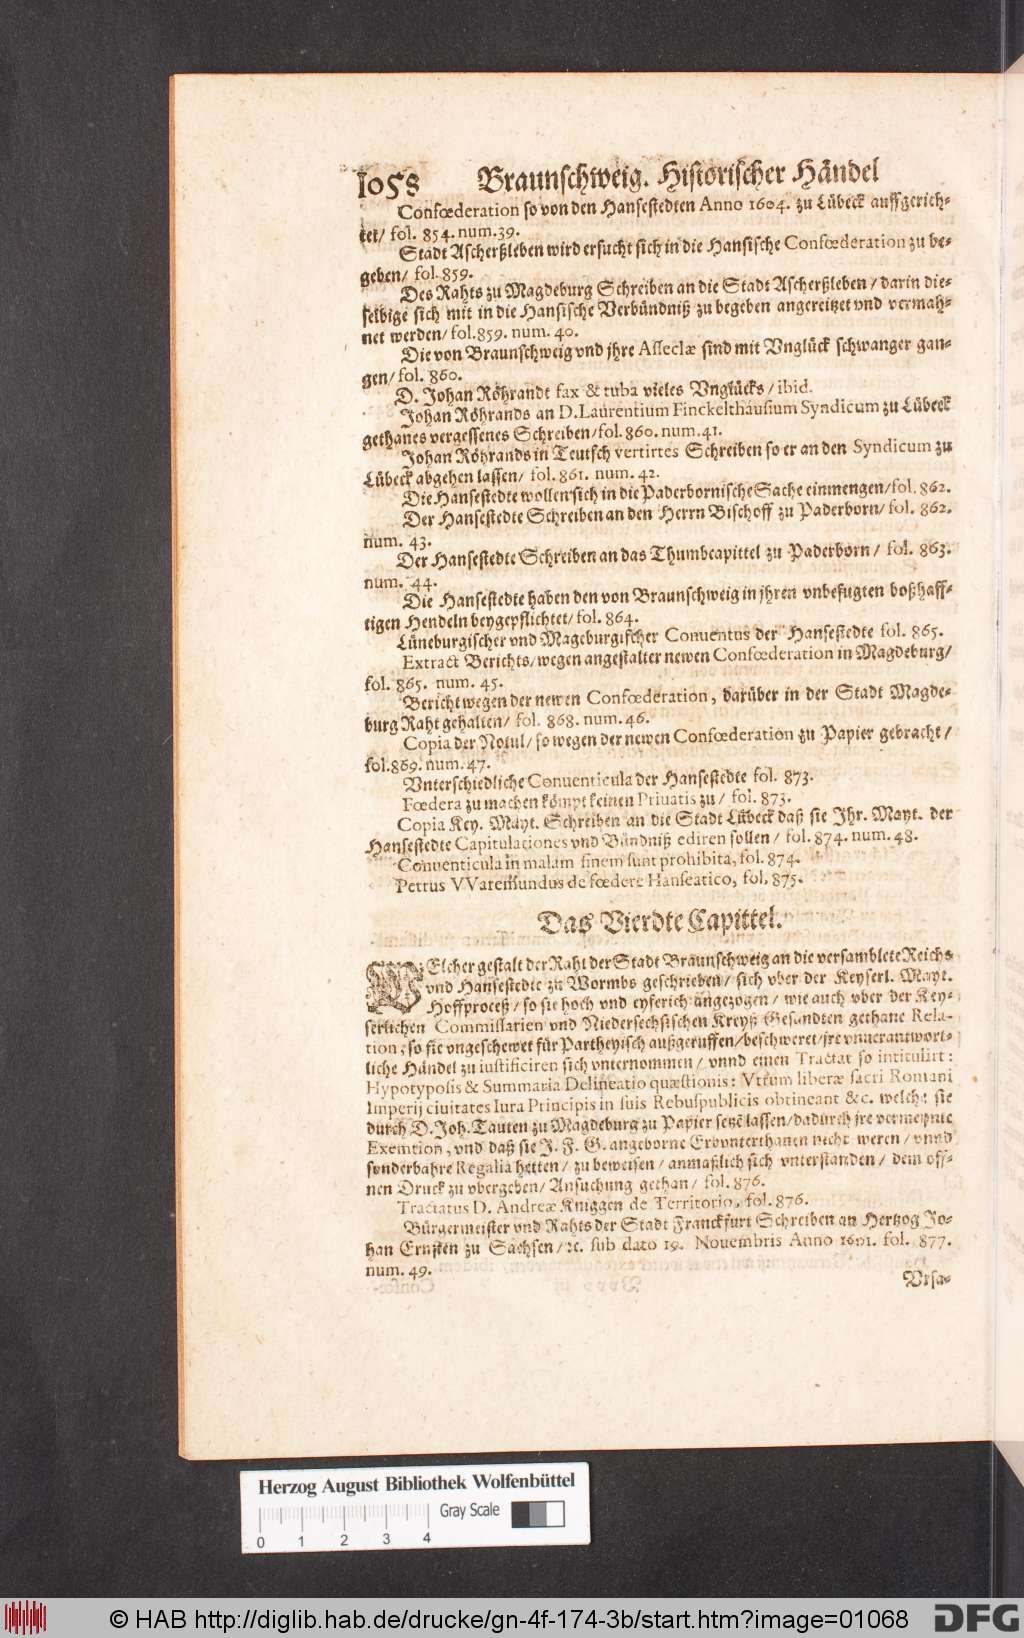 1058 Braunschweig. Historischer Händel
Confœderation so von den Hansestedten Anno 1604. zu Lübeck auffgerich-
tet/ fol. 854. num. 39.
Stadt Ascherßleben wird ersucht sich in die Hansische Confœderation zu be-
geben/ fol. 859.
Des Rahts zu Magdeburg Schreiben an die Stadt Ascherßleben / darin die-
selbige sich mit in die Hansische Verbündniß zu begeben angereitzet vnd vermah-
net werden/ fol. 859. num. 40.
Die von Braunschweig vnd jhre Asseclæ sind mit Vnglück schwanger gan-
gen/ fol. 860.
D. Johan Röhrandt fax & tuba vieles Vnglücks / ibid.
Johan Röhrands an D. Laurentium Finckelthausium Syndicum zu Lübeck
gethanes vergessenes Schreiben/ fol. 860. num. 41.
Johan Röhrands in Teutsch vertirtes Schreiben so er an den Syndicum zu
Lübeck abgehen lassen/ fol. 861. num. 42.
Die Hansestedte wollen sich in die Paderbornische Sache einmengen/ fol. 862.
Der Hansestedte Schreiben an den Herrn Bischoff zu Paderborn/ fol. 862.
num. 43.
Der Hansestedte Schreiben an das Thumbcapittel zu Paderborn / fol. 863.
num. 44.
Die Hansestedte haben den von Braunschweig in jhren vnbefugten boßhaff-
tigen Hendeln beygepflichtet/ fol. 864.
Lüneburgischer vnd Mageburgischer Conuentus der Hansestedte fol. 865.
Extract Berichts/ wegen angestalter newen Confœderation in Magdeburg/
fol. 865. num. 45.
Bericht wegen der newen Confœderation, darüber in der Stadt Magde-
burg Raht gehalten/ fol. 868. num. 46.
Copia der Notul/ so wegen der newen Confœderation zu Papier gebracht /
fol. 869. num. 47.
Vnterschiedliche Conuenticula der Hansestedte fol. 873.
Fœdera zu machen kömpt keinen Priuatis zu / fol. 873.
Copia Key. Mayt. Schreiben an die Stadt Lübeck daß sie Jhr. Mayt. der
Hansestedte Capitulationes vnd Bündniß ediren sollen / fol. 874. num. 48.
Conuenticula in malam finem sunt prohibita, fol. 874.
Petrus VVaremundus de fœdere Hanseatico, fol. 875.
Das Vierdte Capittel.
WElcher gestalt der Raht der Stadt Braunschweig an die versamblete Reichs
vnd Hansestedte zu Wormbs geschrieben/ sich vber der Keyserl. Mayt.
Hoffproceß / so sie hoch vnd eyferich angezogen / wie auch vber der Key-
serlichen Commissarien vnd Niedersechsischen Kreyß Gesandten gethane Rela-
tion, so sie vngeschewet für Partheyisch außgeruffen/ beschweret/ jre vnuerantwort-
liche Händel zu iustificiren sich vnternommen / vnnd einen Tractat so intitulirt:
Hypotyposis & Summaria Delineatio quæstionis: Vtrum liberæ sacri Romani
Imperij ciuitates Iura Principis in suis Rebuspublicis obtineant &c. welche sie
durch D. Joh. Tauten zu Magdeburg zu Papier setzē lassen/ dadurch jre vermeinte
Exemtion, vnd daß sie J. F. G. angeborne Erbvnterthanen nicht weren / vnnd
sonderbahre Regalia hetten / zu beweisen / anmaßlich sich vnterstanden / dem off-
nen Druck zu vbergeben/ Ansuchung gethan / fol. 876.
Tractatus D. Andreæ Kniggen de Territorio, fol. 876.
Bürgermeister vnd Rahts der Stadt Franckfurt Schreiben an Hertzog Jo-
han Ernsten zu Sachsen / ꝛc. sub dato 19. Nouembris Anno 1601. fol. 877.
num. 49.
Vrsa-
Herzog August Bibliothek Wolfenbüttel
Gray Scale
0 1 2 3 4
© HAB http://diglib.hab.de/drucke/gn-4f-174-3b/start.htm?image=01068
DFG